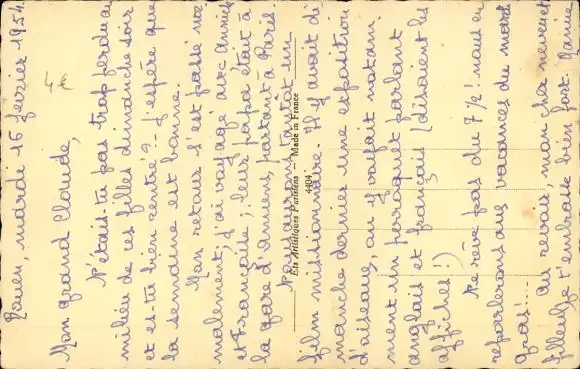 Rouen, mardi 16 février 1954
Mon grand Claude,
N'étais-tu pas trop perdu au
milieu de ces filles dimanche soir
et es-tu bien rentré? - J'espère que
la semaine est bonne.
Mon retour s'est passé nor-
malement; j'ai voyagé avec Annick
et Françoise; leur papa était à
la gare d'Amiens, partant à Paris.
Nous aurons tantôt un
film missionnaire. Il y avait di-
manche dernier une exposition
d'oiseaux, on y voyait notam-
ment un perroquet parlant
anglais et français (disaient les
affiches!)
Ne rêve pas du 7 1/2! nous en
reparlerons aux vacances du mardi
gras!...
Au revoir, mon cher neveu et
filleul, je t'embrasse bien fort.
Ets Artistiques Parisiens — Made in France
4404